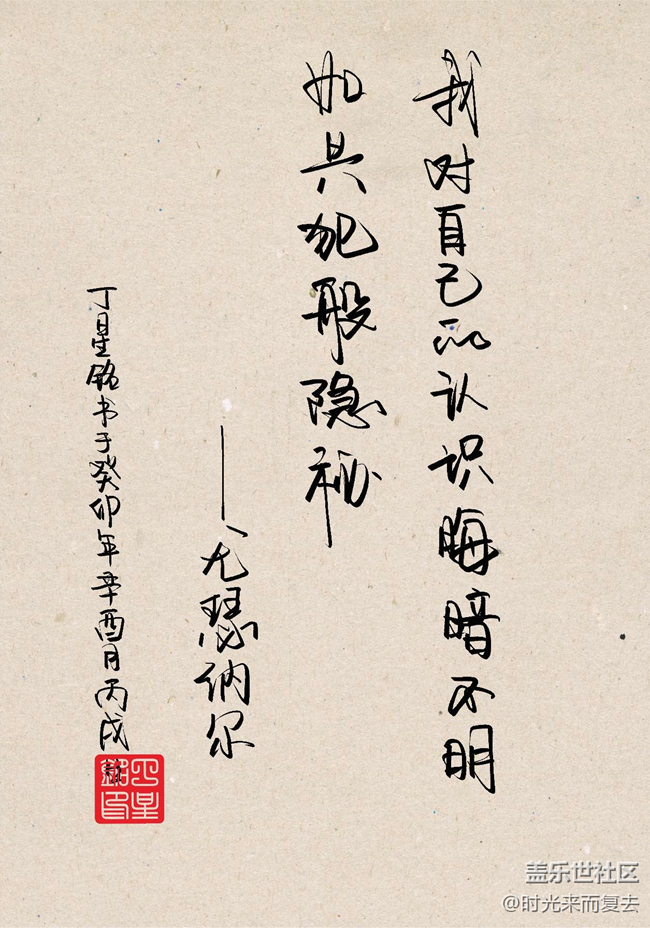 我对自己的认识晦暗不明
如共犯般隐秘
——尤瑟纳尔
丁星铭书于癸卯年辛酉月丙戌
盖乐世社区
@时光来而复去